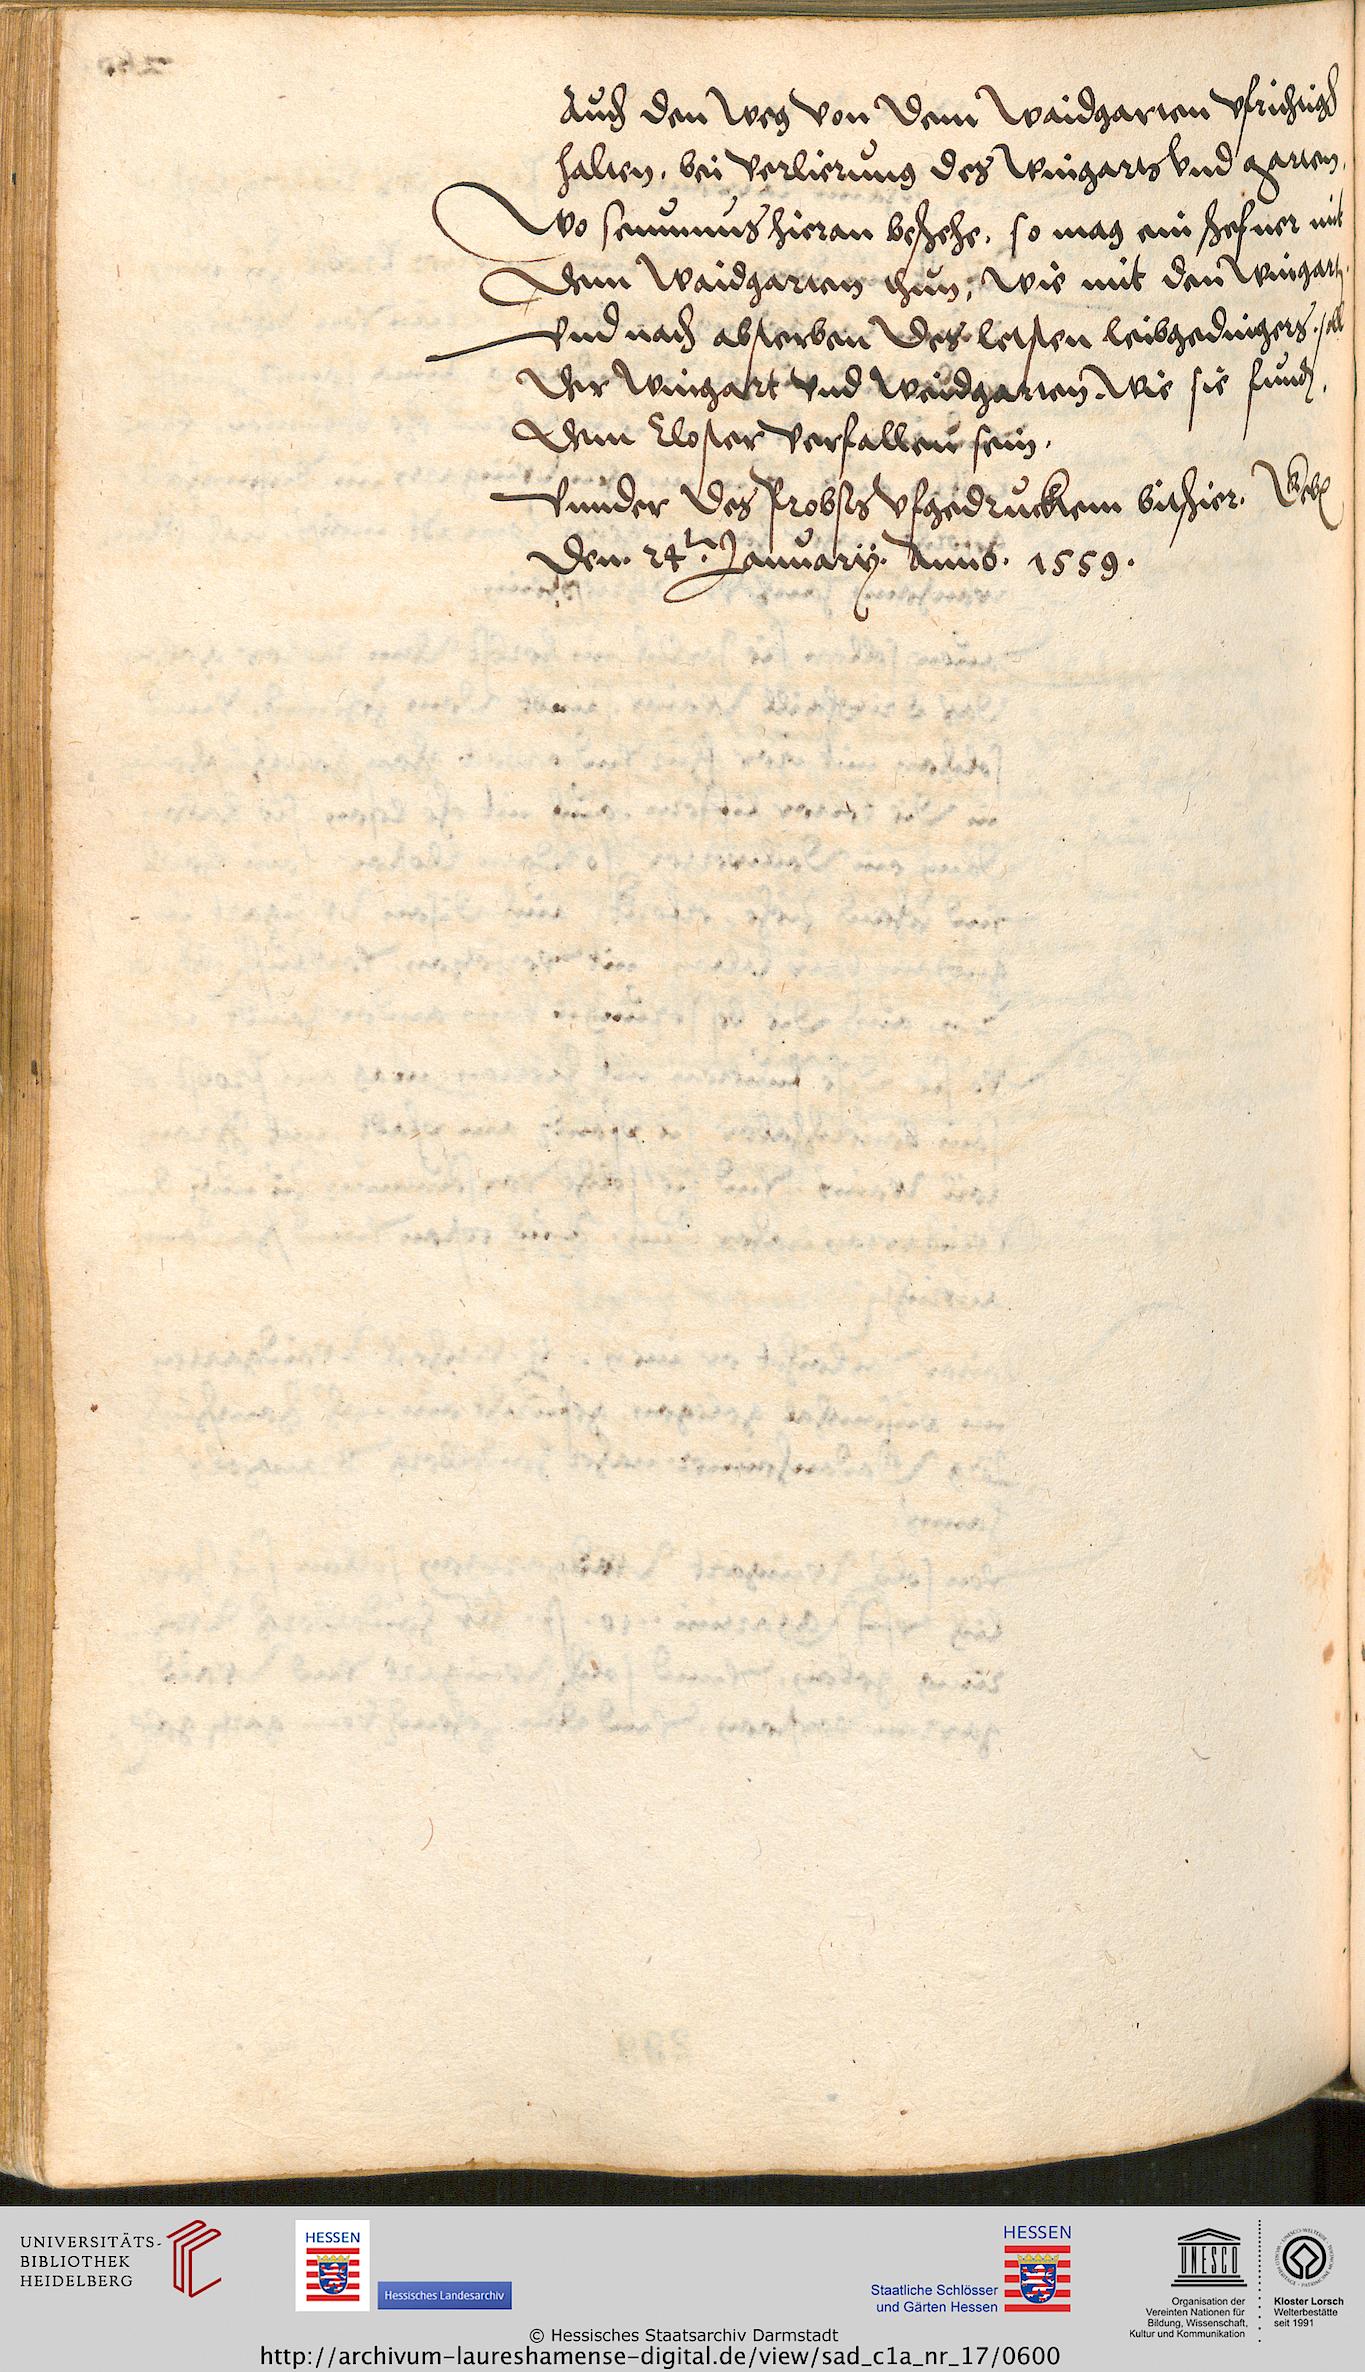 Auch den Weg von dem Waidgarten vfrichtig
halten, bei verlierung des Wingarts vnd garten,
Wo seumnus hieran beschehe, so mag ein hefner mit
dem Waidgarten thun, wie mit den Wingart,
Vnd nach absterben des letsten leibgedingers, soll
der Wingart vnd Waidgarten, wie sie funden,
dem Closter verfallen sein.
Vnnder des Probsts vfgedrucktem bitschier.
den 24t. January. Anno. 1559.
UNIVERSITÄTS-
BIBLIOTHEK
HEIDELBERG
HESSEN
Hessisches Landesarchiv
HESSEN
Staatliche Schlösser
und Gärten Hessen
UNESCO
Organisation der
Vereinten Nationen für
Bildung, Wissenschaft,
Kultur und Kommunikation
Kloster Lorsch
Welterbestätte
seit 1991
© Hessisches Staatsarchiv Darmstadt
http://archivum-laureshamense-digital.de/view/sad_c1a_nr_17/0600